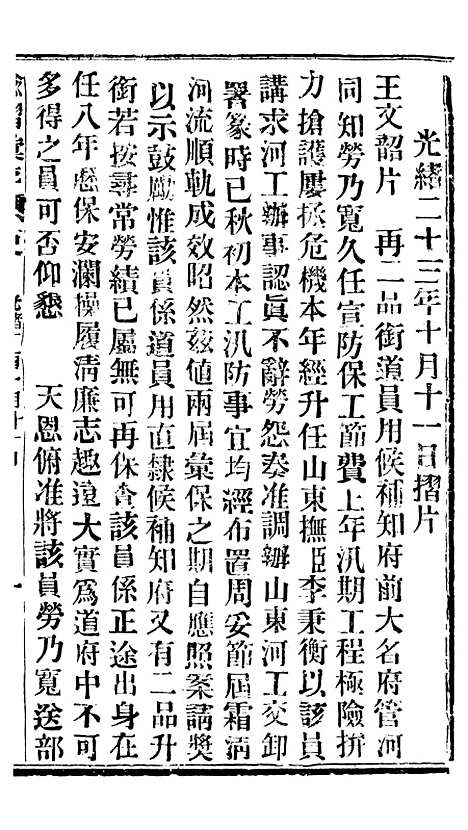 光緒二十三年十月十一日摺片
王文韶片　再二品銜道員用候補知府前大名府管河
同知勞乃寬久任宣防保工節費上年汛期工程極險拚
力搶護屢拯危機本年經升任山東撫臣李秉衡以該員
講求河工辦事認眞不辭勞怨奏准調辦山東河工交卸
署篆時已秋初本工汛防事宜均經布置周妥節屆霜淸
河流順軌成效昭然茲值兩屆彙保之期自應照案請獎
以示鼓勵惟該員係道員用直隸候補知府又有二品升
銜若按尋常勞績已屬無可再保查該員係正途出身在
任八年悉保安瀾操履淸廉志趣遠大實爲道府中不可
多得之員可否仰懇　天恩俯准將該員勞乃寬送部
諭摺彙存